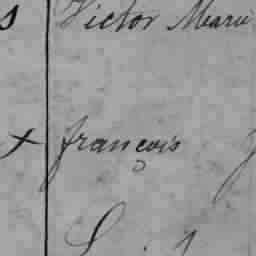 s Victor Marie
+ françois